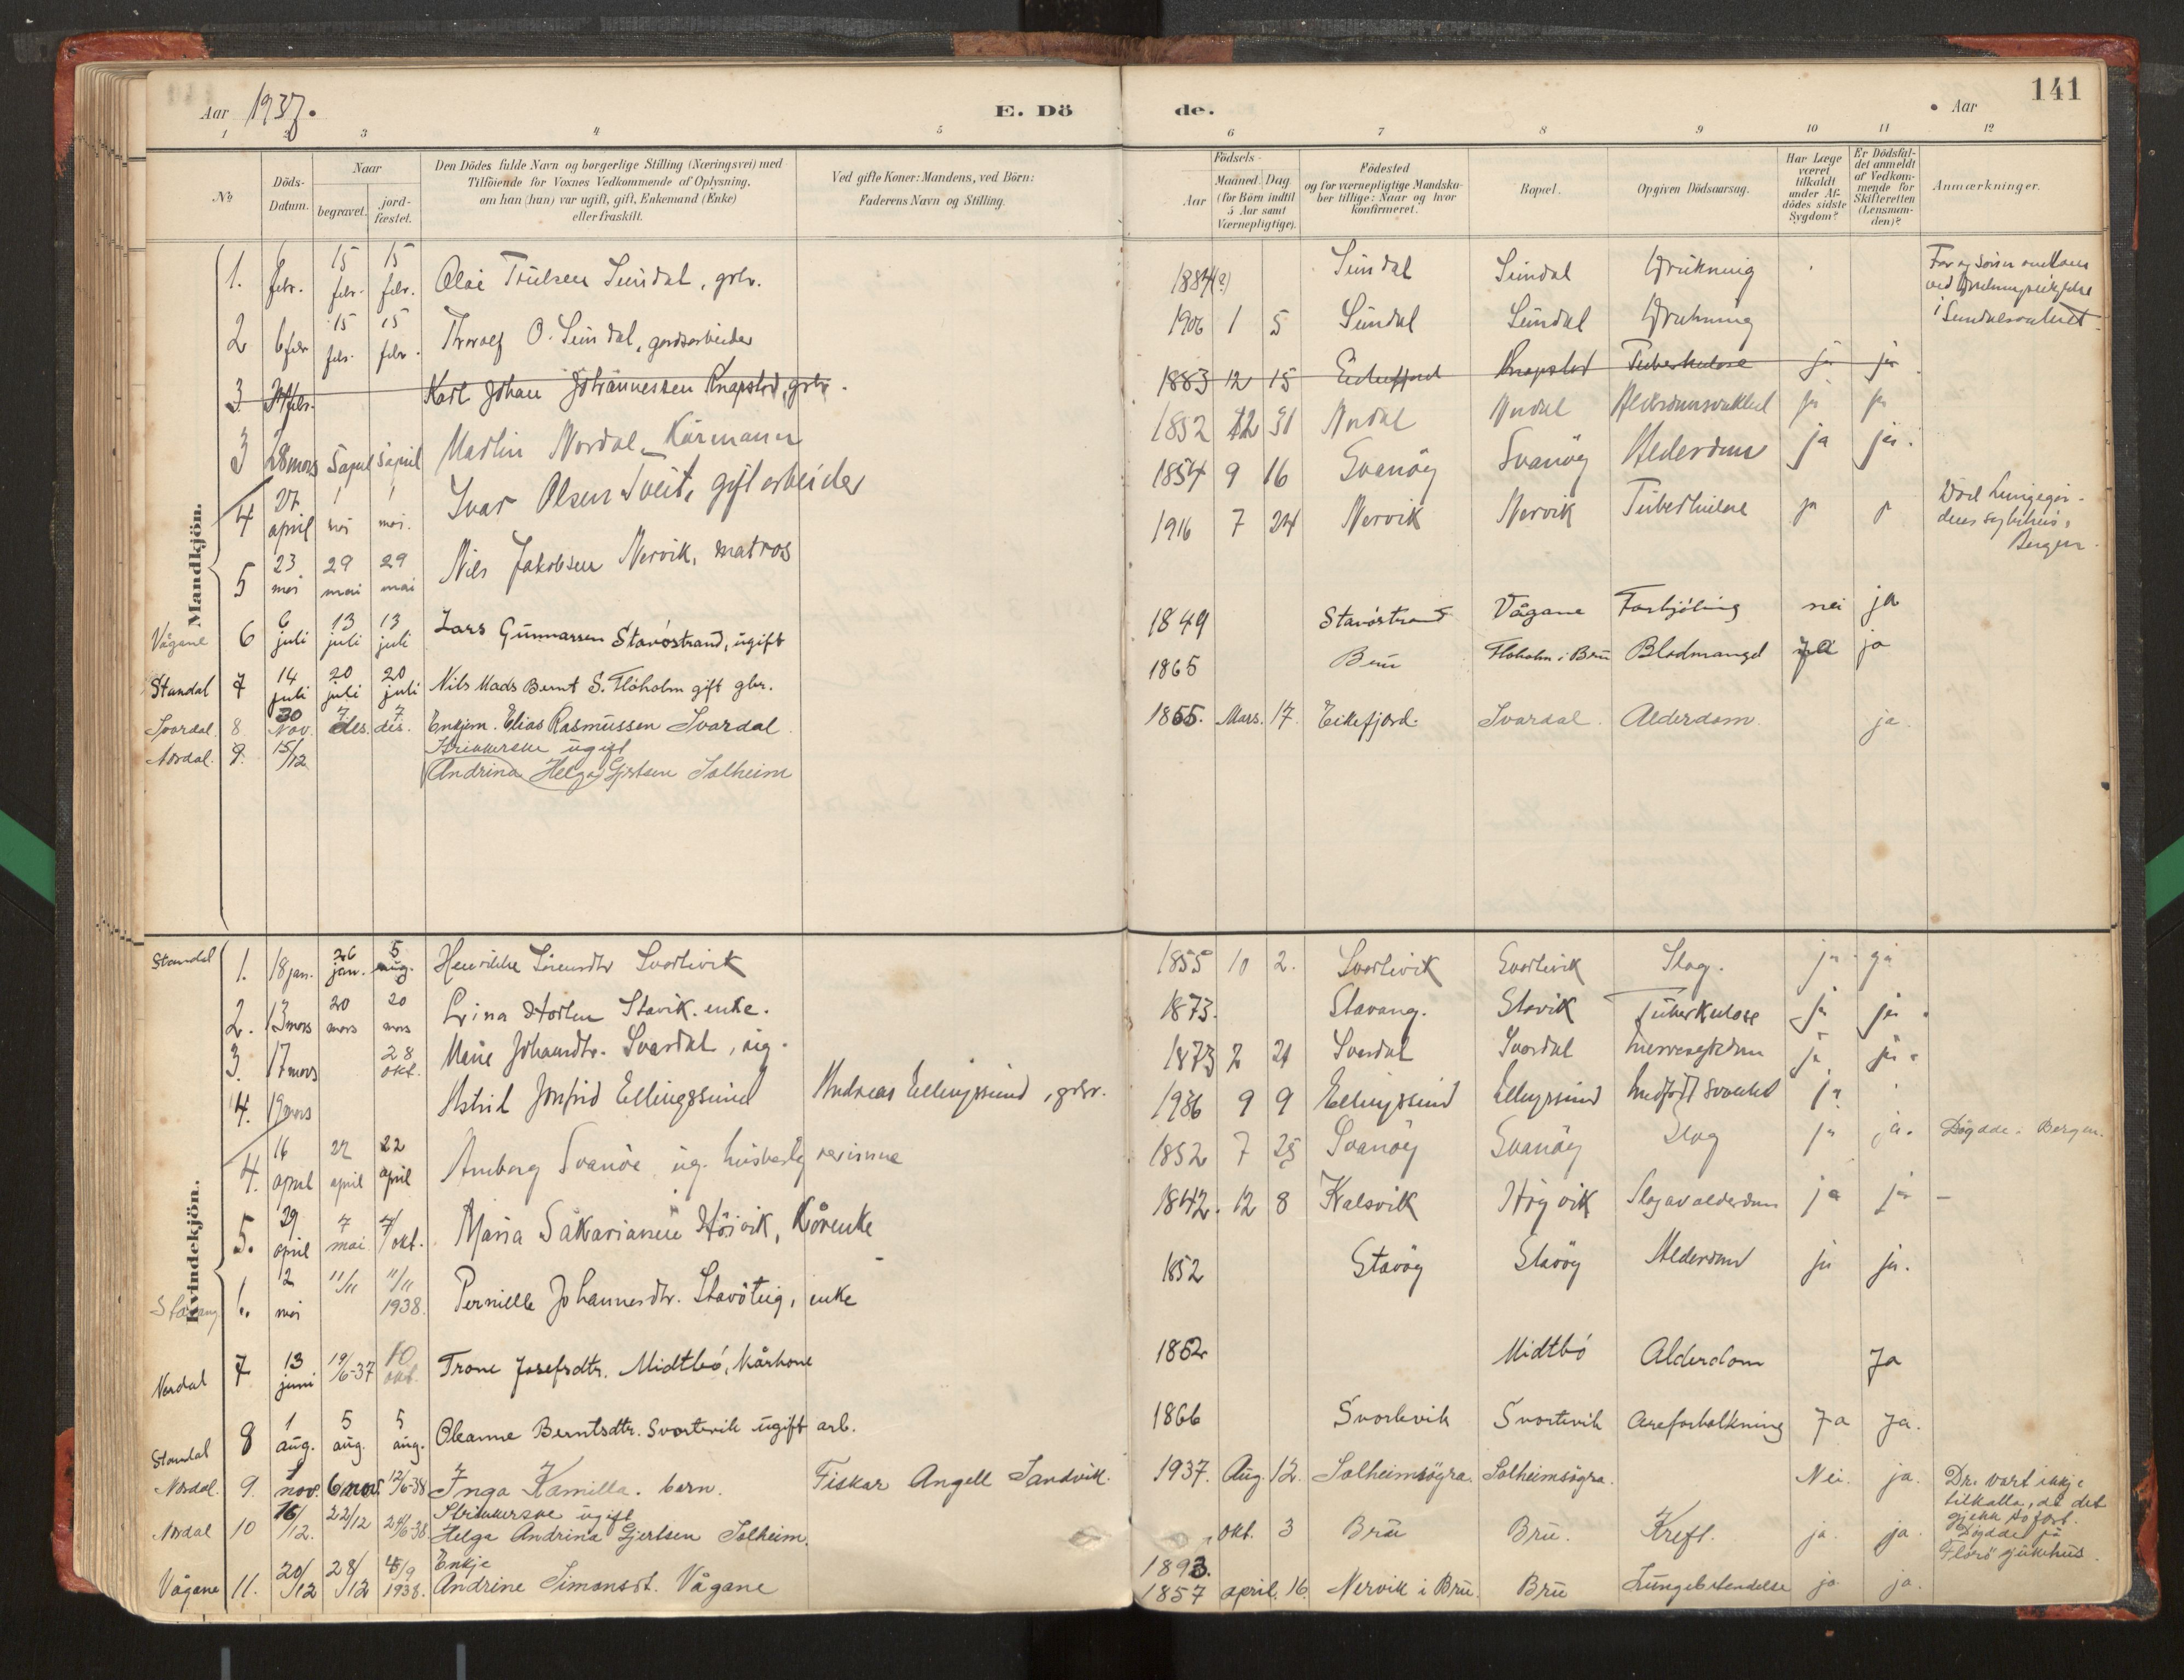 Aar 1937.
E. Döde.
Aar
141
1 2 3 4 5 6 7 8 9 10 11 12
No
Döds-Datum.
Naar
begravet.
jord-fæstet.
Den Dödes fulde Navn og borgerlige Stilling (Næringsvei) med
Tilföiende for Voxnes Vedkommende af Oplysning,
om han (hun) var ugift, gift, Enkemand (Enke)
eller fraskilt.
Ved gifte Koner: Mandens, ved Börn:
Faderens Navn og Stilling.
Födsels-
Aar
Maaned. Dag
(for Börn indtil
5 Aar samt
Værnepligtige).
Födested
og for værnepligtige Mandska-
ber tillige: Naar og hvor
konfirmeret.
Bopæl.
Opgiven Dödsaarsag.
Har Læge
været
tilkaldt
under Af-
dödes sidste
Sygdom?
Er Dödsfal-
det anmeldt
af Vedkom-
mende for
Skifteretten
(Lensman-
den)?
Anmærkninger.
Mandkjön.
1. 6 febr. 15 febr. 15 febr. Olai Sundal, grbr. 1884(?) Sundal Sundal Drukning
2 6 febr 15 febr. 15 febr. O. Sundal, gardsarbeider 1906 1 5 Sundal Sundal Drukning
3 febr. Karl Johan Johannessen Knapstad, grbr. 1883 12 15 Eikefjord Knapstad Tuberkulose ja ja
3 28 mars 5 april 5 april Martin Nordal, Kårmann 1852 12 31 Nordal Nordal ja ja
4 27 april 1 mai 1 mai. Ivar Olsen Tveit, gift arbeider 1854 9 16 Svanöy Svanöy Alderdom ja ja.
5 23 mai 29 mai 29 mai Nils Jakobsen Nervik, matros 1916 7 24 Nervik Nervik Tuberkulose ja Bergen.
Vågane 6 6 juli 13 juli 13 juli Lars Gunnarsen Stavöstrand, ugift 1849 Stavöstrand Vågane Forkjöling nei ja
Standal 7 14 juli 20 juli 20 juli Nils Mads Bernt S. Flöholm gift gbr. 1865 Bru Floholm i Bru Blodmangel ja ja
Svardal. 8. 30 Nov. 7 des. 7 des. Enkjem. Elias Rasmussen Svardal 1855. Mars. 17. Eikefjord. Svardal. Alderdom. ja.
Nordal. 9. 15/12 Strikkerske ugift
Andrina Helga Gjertsen Solheim
Kvindekjön.
Standal 1. 18 jan. 26 jan. 5 aug. Henrikke Sörensdtr Svortevik 1855 10 2. Svortevik Svortevik Slag. ja ja
2. 13 mars 20 mars 20 mars Stavik. enke. 1873. Stavang. Stavik Tuberkulose ja ja.
3. 17 mars 28 okt. Johansdtr. Svardal, ug. 1873 2 21 Svardal Svardal ja ja.
4. 19 mars Astrid Jonfrid Ellingssund Andreas Ellingssund, grbr. 1936 9 9 Ellingssund Ellingssund Medfödt svakhet ja
4. 16 april 22 april 22 april Svanöe ug. 1852 7 25 Svanöy Svanöy Slag ja ja. Dögdde i Bergen.
5. 29 april 7 mai 7/okt. Maria Sakariasen Höivik, Kårenke 1842. 12 8 Kalsvik Höyvik Slag av alderdom ja ja
Stavang 6. 12 mai 11/11 11/11 1938. Pernille Johannesdtr. Stavöteig, enke 1852 Stavöy Stavöy Alderdom ja ja.
Nordal 7 13 juni 19/6-37 10 okt. Trone Josefsdtr. Midtbö, kårkone 1862 Midtbö Alderdom Ja
Standal 8 1 aug. 5 aug. 5 aug. Oleanne Berntsdtr. Svortevik ugift arb. 1866 Svortevik Svortevik Areforkalkning Ja Ja.
Nordal. 9. 1 nov. 6 nov. 12/6-38 Inga Kamilla. barn. Fiskar Angell Sandvik. 1937. Aug. 12. Solheimsögra. Solheimsögra. Nei. ja. Dr. vart ikkje
tilkalla, då det
gjekk so fort.
Nordal 10 16/12. 22/12 24/6-38 Strikkerske ugift
Helga Andrina Gjertsen Solheim. okt. 3 Bru Bru. Kreft. ja. ja. Dögdde på
Florö sjukehus.
1893.
Vågane 11. 20/12 28/12 4/9 1938. Enkje
Andrine Simonsdt. Vågane 1857 april. 16. Nervik i Bru. Bru Lungebetendelse ja ja.